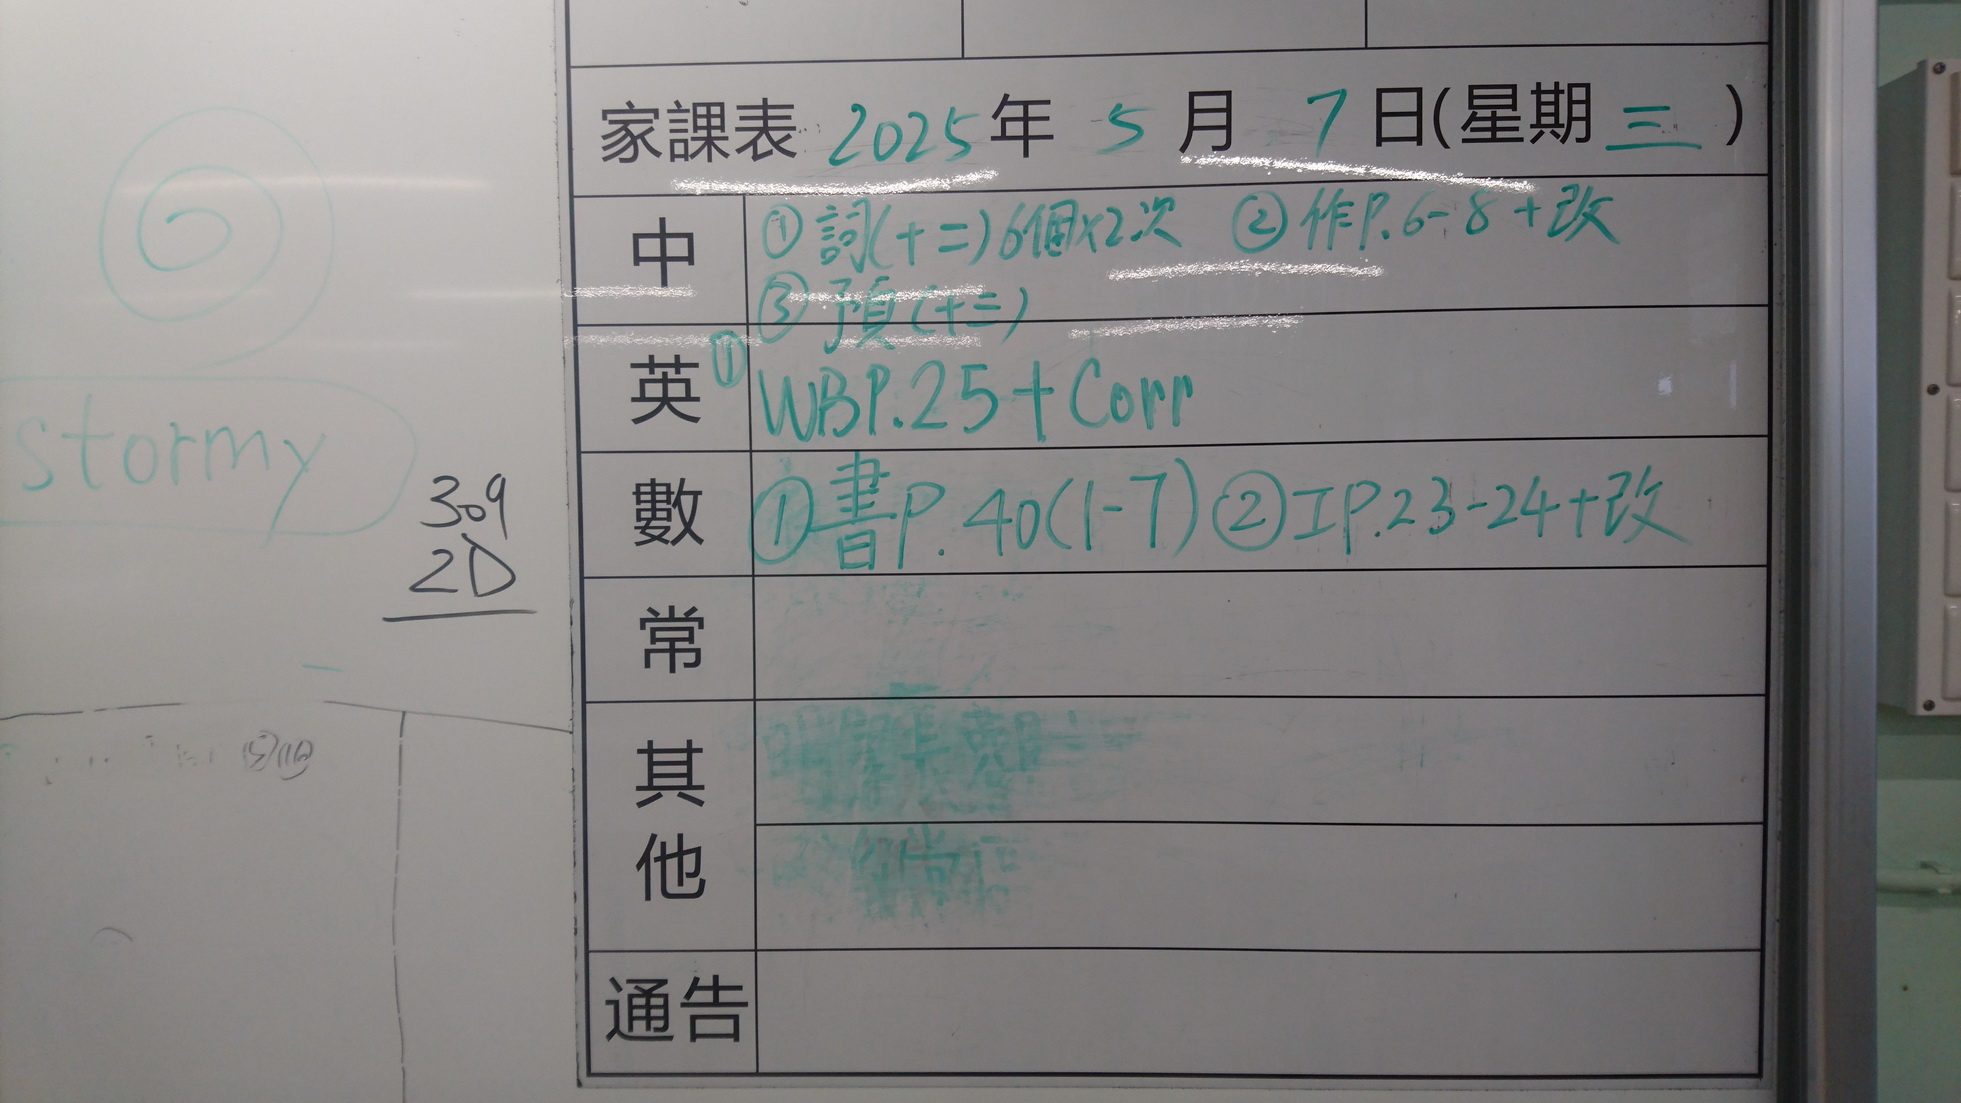 家課表 2025 年 5 月 7 日(星期 三 )
中 ① 詞(十二)6個x2次 ② 作P.6-8+改
③ 預(十二)
英 ① WBP.25+Corr
數 ①書P.40(1-7) ②工P.23-24+改
常
其他
通告
stormy
309
2D